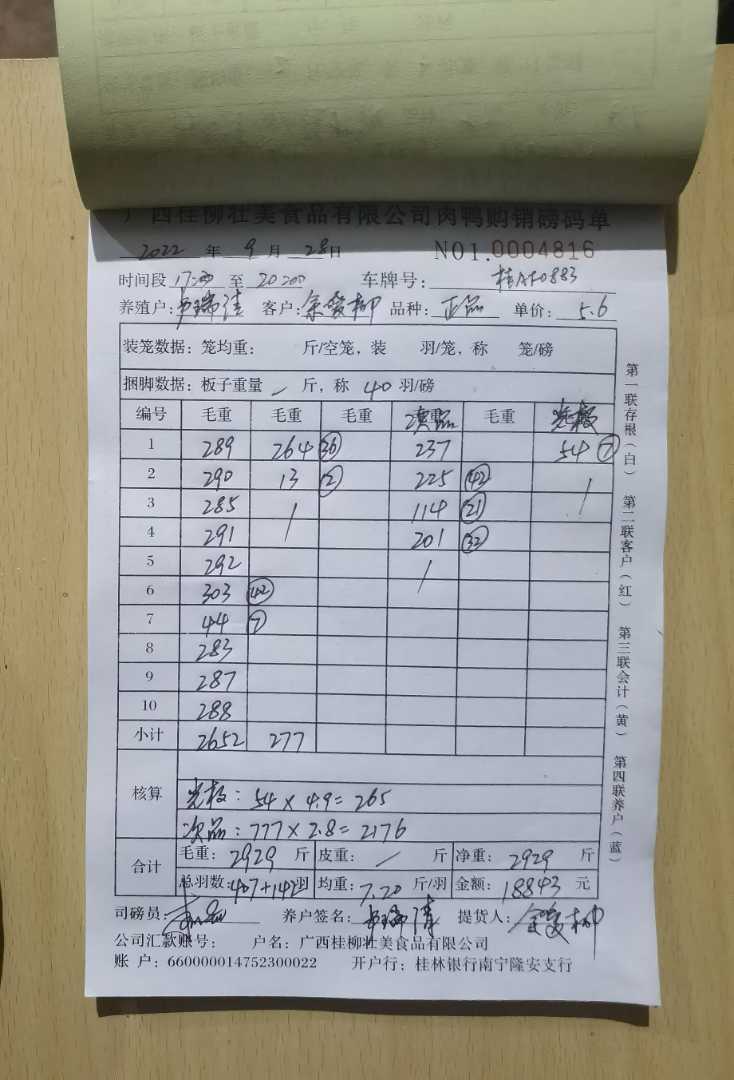 广西桂柳壮美食品有限公司肉鸭购销磅码单
2022 年 9 月 28日 NO1.0004816
时间段 至 20:00 车牌号: 桂AF0883
养殖户: 客户: 品种: 正品 单价: 5.6
装笼数据: 笼均重: 斤/空笼, 装 羽/笼, 称 笼/磅
捆脚数据: 板子重量 / 斤, 称 40 羽/磅
编号 毛重 毛重 毛重 次品 毛重
1 289 264 (36) 237 54 (7)
2 290 13 (2) 225 (42) /
3 285 / 114 (21)
4 291 201 (32)
5 292 /
6 303 (42)
7 44 (7)
8 283
9 287
10 288
小计 2652 277
核算
54 × 4.9 = 265
次品: 777 × 2.8 = 2176
合计
毛重: 2929 斤 皮重: / 斤 净重: 2929 斤
总羽数: 407+142羽 均重: 7.20 斤/羽 金额: 18843 元
司磅员: 养户签名: 提货人:
公司汇款账号: 户名: 广西桂柳壮美食品有限公司
账 户: 660000014752300022 开户行: 桂林银行南宁隆安支行
第一联存根(白) 第二联客户(红) 第三联会计(黄) 第四联养户(蓝)